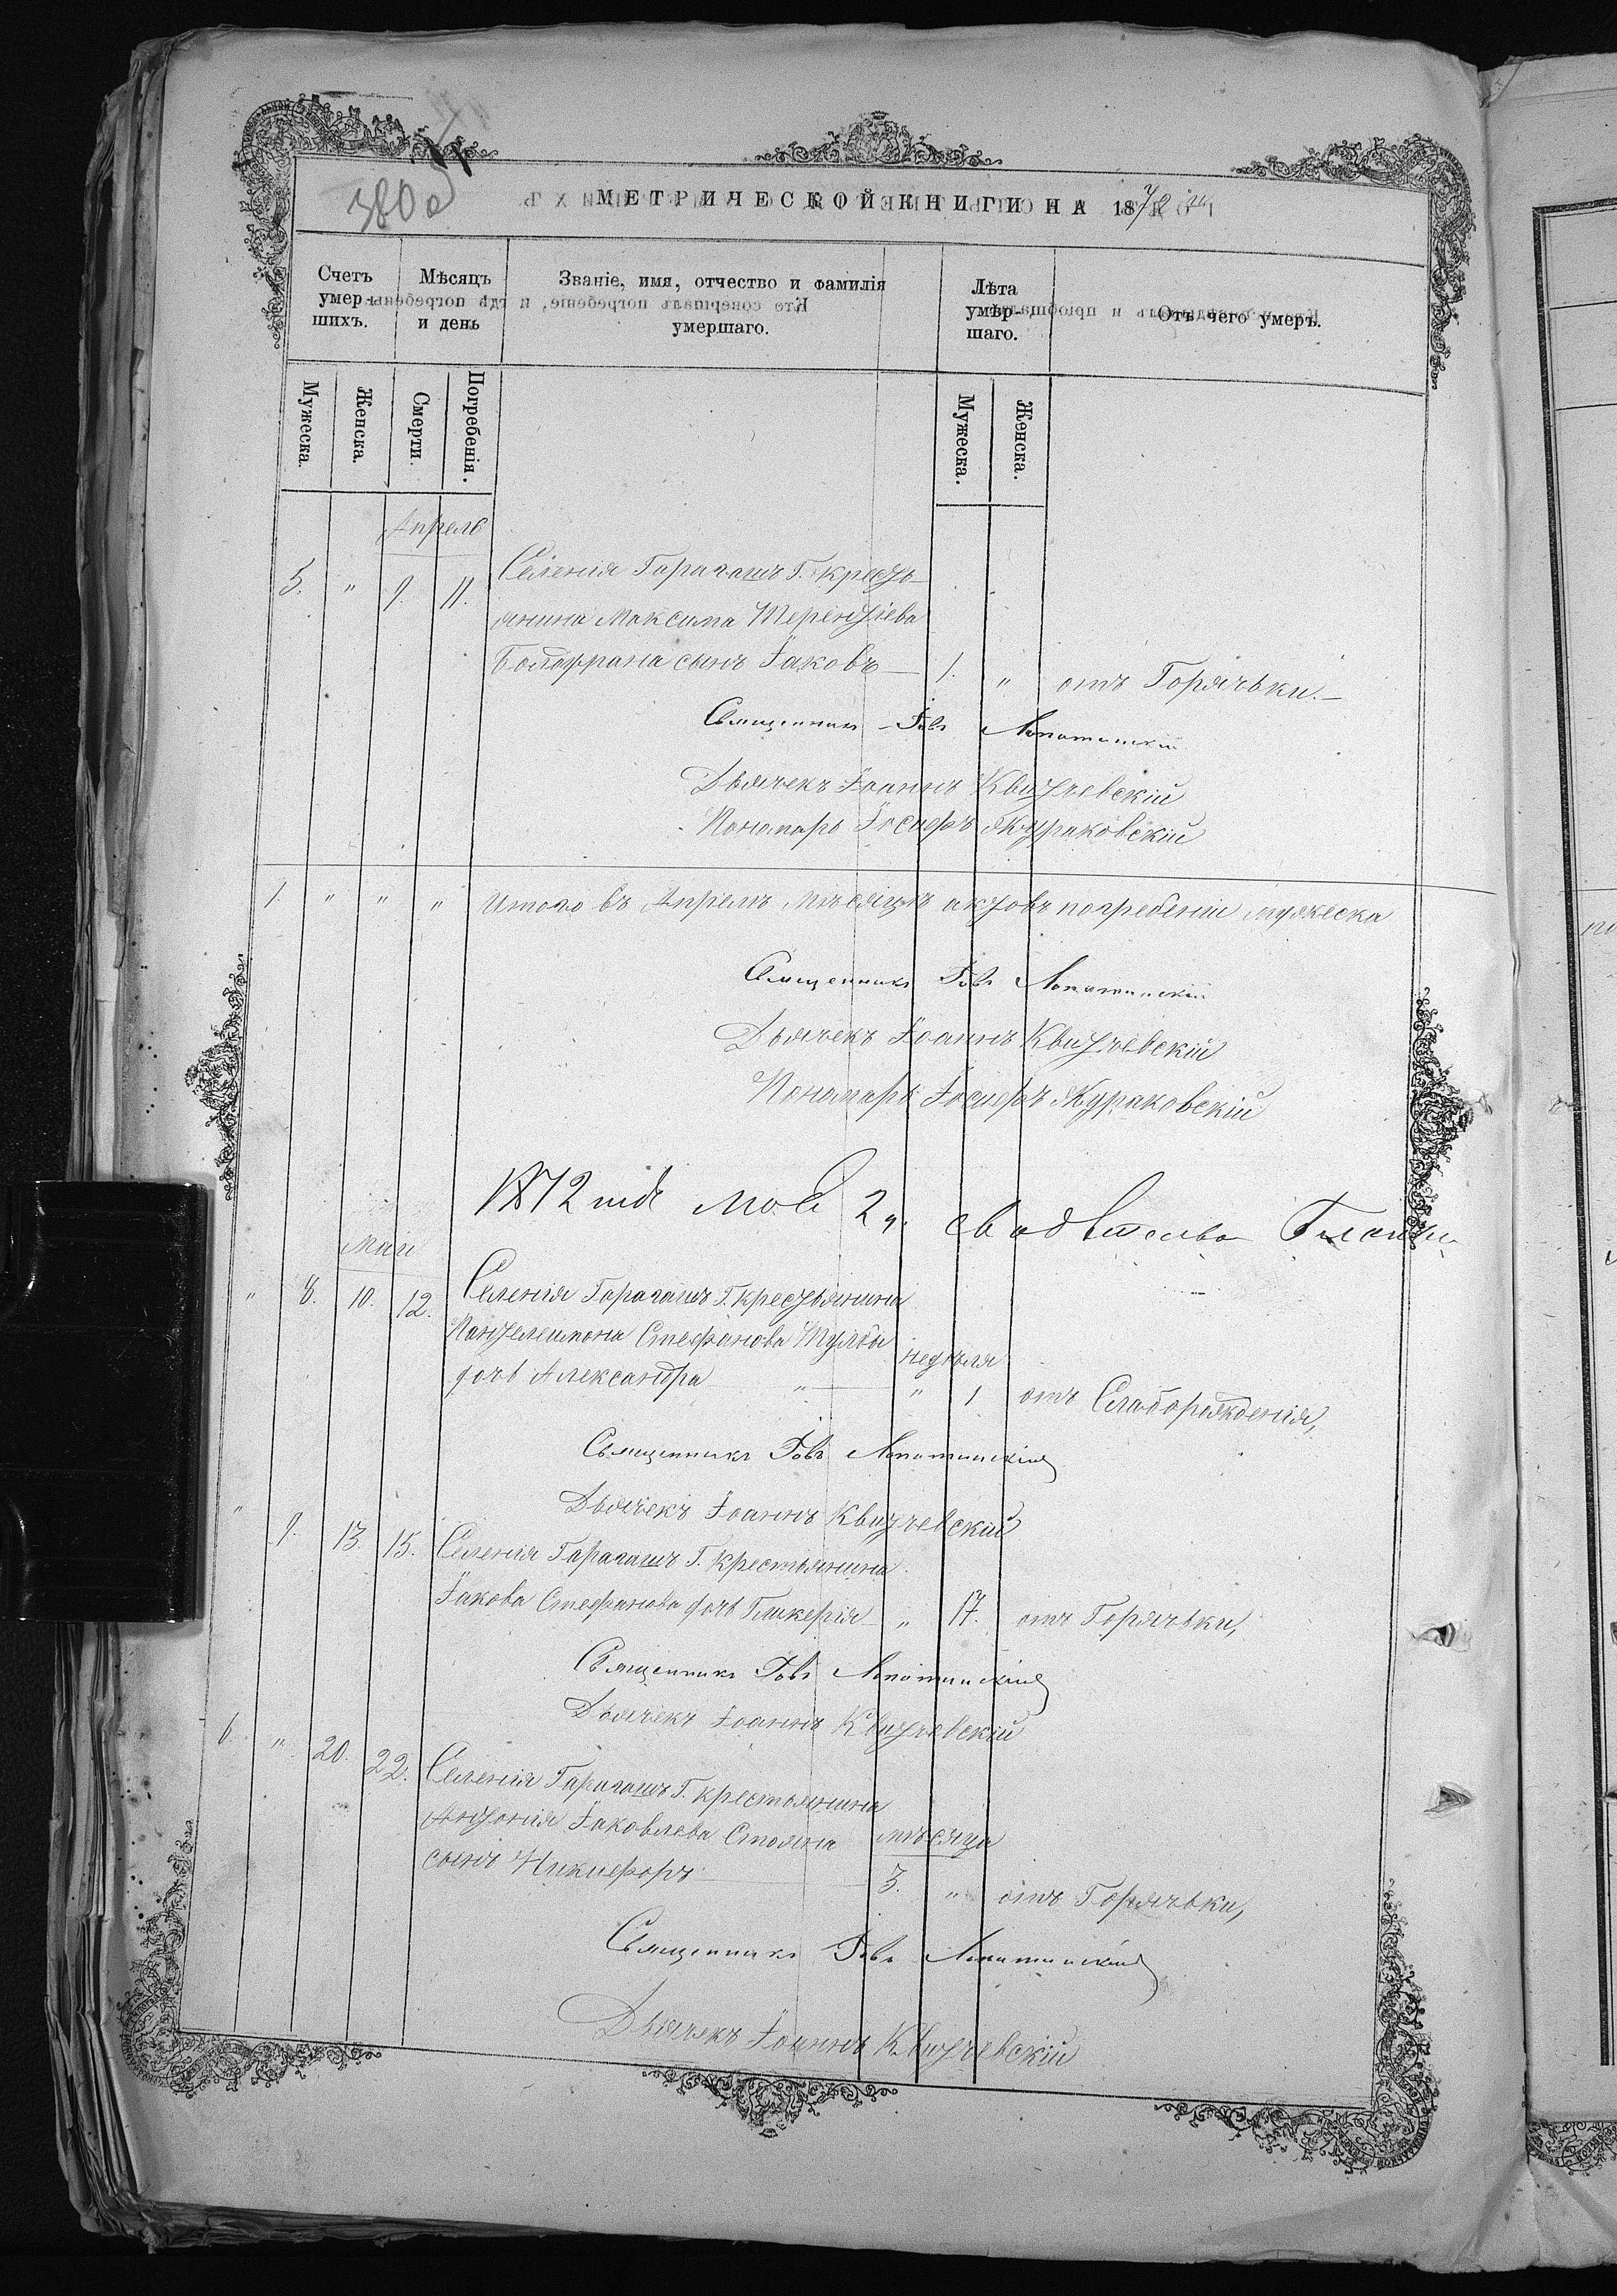 380
МЕТРИЧЕСКОЙ КНИГИ НА 1872
Счетъ умер-шихъ.
Мѣсяцъ и день
Званіе, имя, отчество и фамилія умершаго.
Лѣта умер-шаго.
Отъ чего умеръ.
Мужеска.
Женска.
Смерти.
Погребенія.
Мужеска.
Женска.
Апрель
5. " 9. 11. Селенія Гарагашъ Г. кресть-
янина Максима Терентіева
сынъ Іаковъ — 1. " отъ Горячьки. —
Священникъ Лопатинскій
Дьячекъ Іоаннъ Квитчевскій
Пономарь Іосифъ Жураковскій
1. " " " Итого въ Апрелѣ мѣсяцѣ актовъ погребеніи мужеска
Священникъ Лопатинскій
Дьячекъ Іоаннъ Квитчевскій
Пономарь Іосифъ Жураковскій
1872 года мая 2
Маій
" 8. 10. 12. Селенія Гарагашъ Г. крестьянина
Пантелеимона Стефанова Тулбы недѣля
дочь Александра " 1 отъ Слаборожденія,
Священникъ Лопатинскій
Дьячекъ Іоаннъ Квитчевскій
" 9. 13. 15. Селенія Гарагашъ Г. крестьянина
Іакова Стефанова дочь Гликерія " 17. отъ Горячьки,
Священникъ Лопатинскій
Дьячекъ Іоаннъ Квитчевскій
6. " 20. 22. Селенія Гарагашъ Г. крестьянина
Антонія Іаковлева Стояна мѣсяца
сынъ Никифоръ 3. " отъ Горячьки,
Священникъ Лопатинскій
Дьячекъ Іоаннъ Квитчевскій